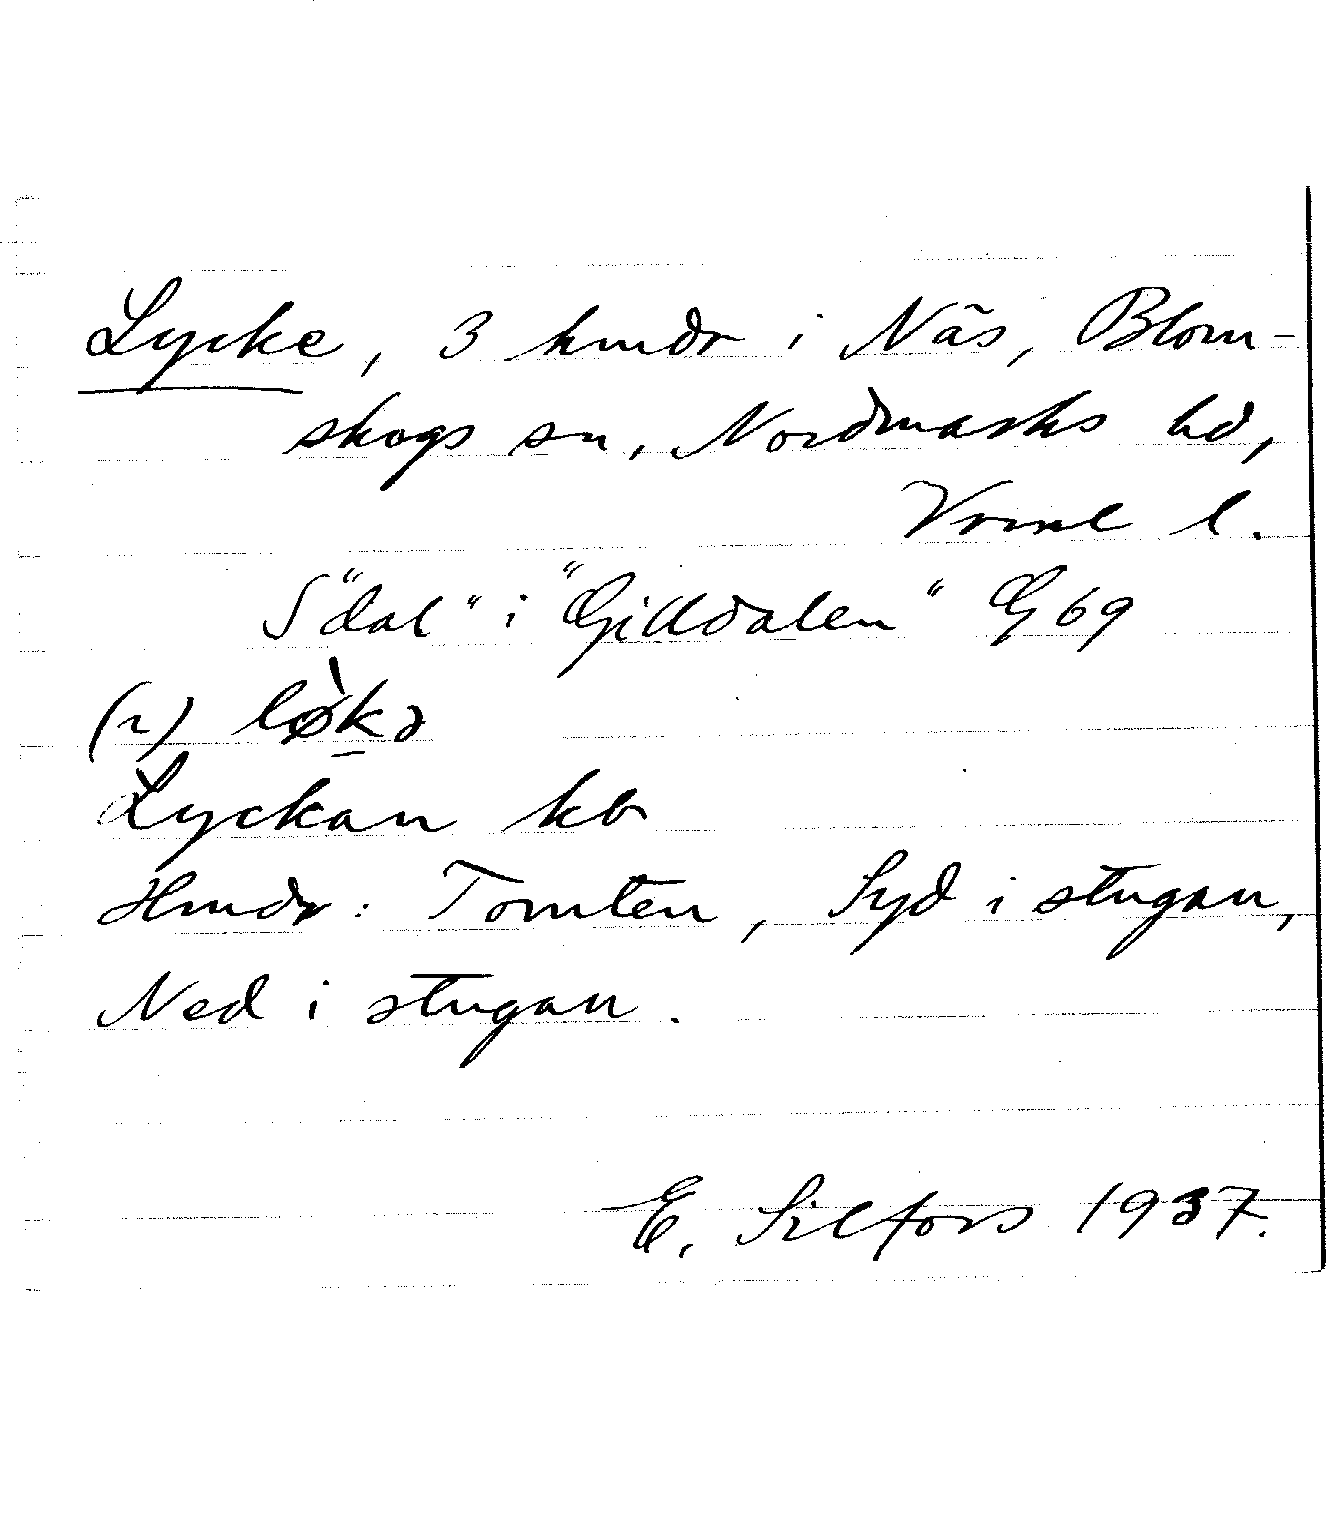 Lycke, 3 hmdr i Näs, Blom-
skogs sn, Nordmarks hd,
Vrml l.
S "dal" i "Gilldalen" G 69
(~) lø̀kə
Lyckan kb
Hmdr: Tomten, Syd i stugan,
Ned i stugan.
E. Silfors 1937.